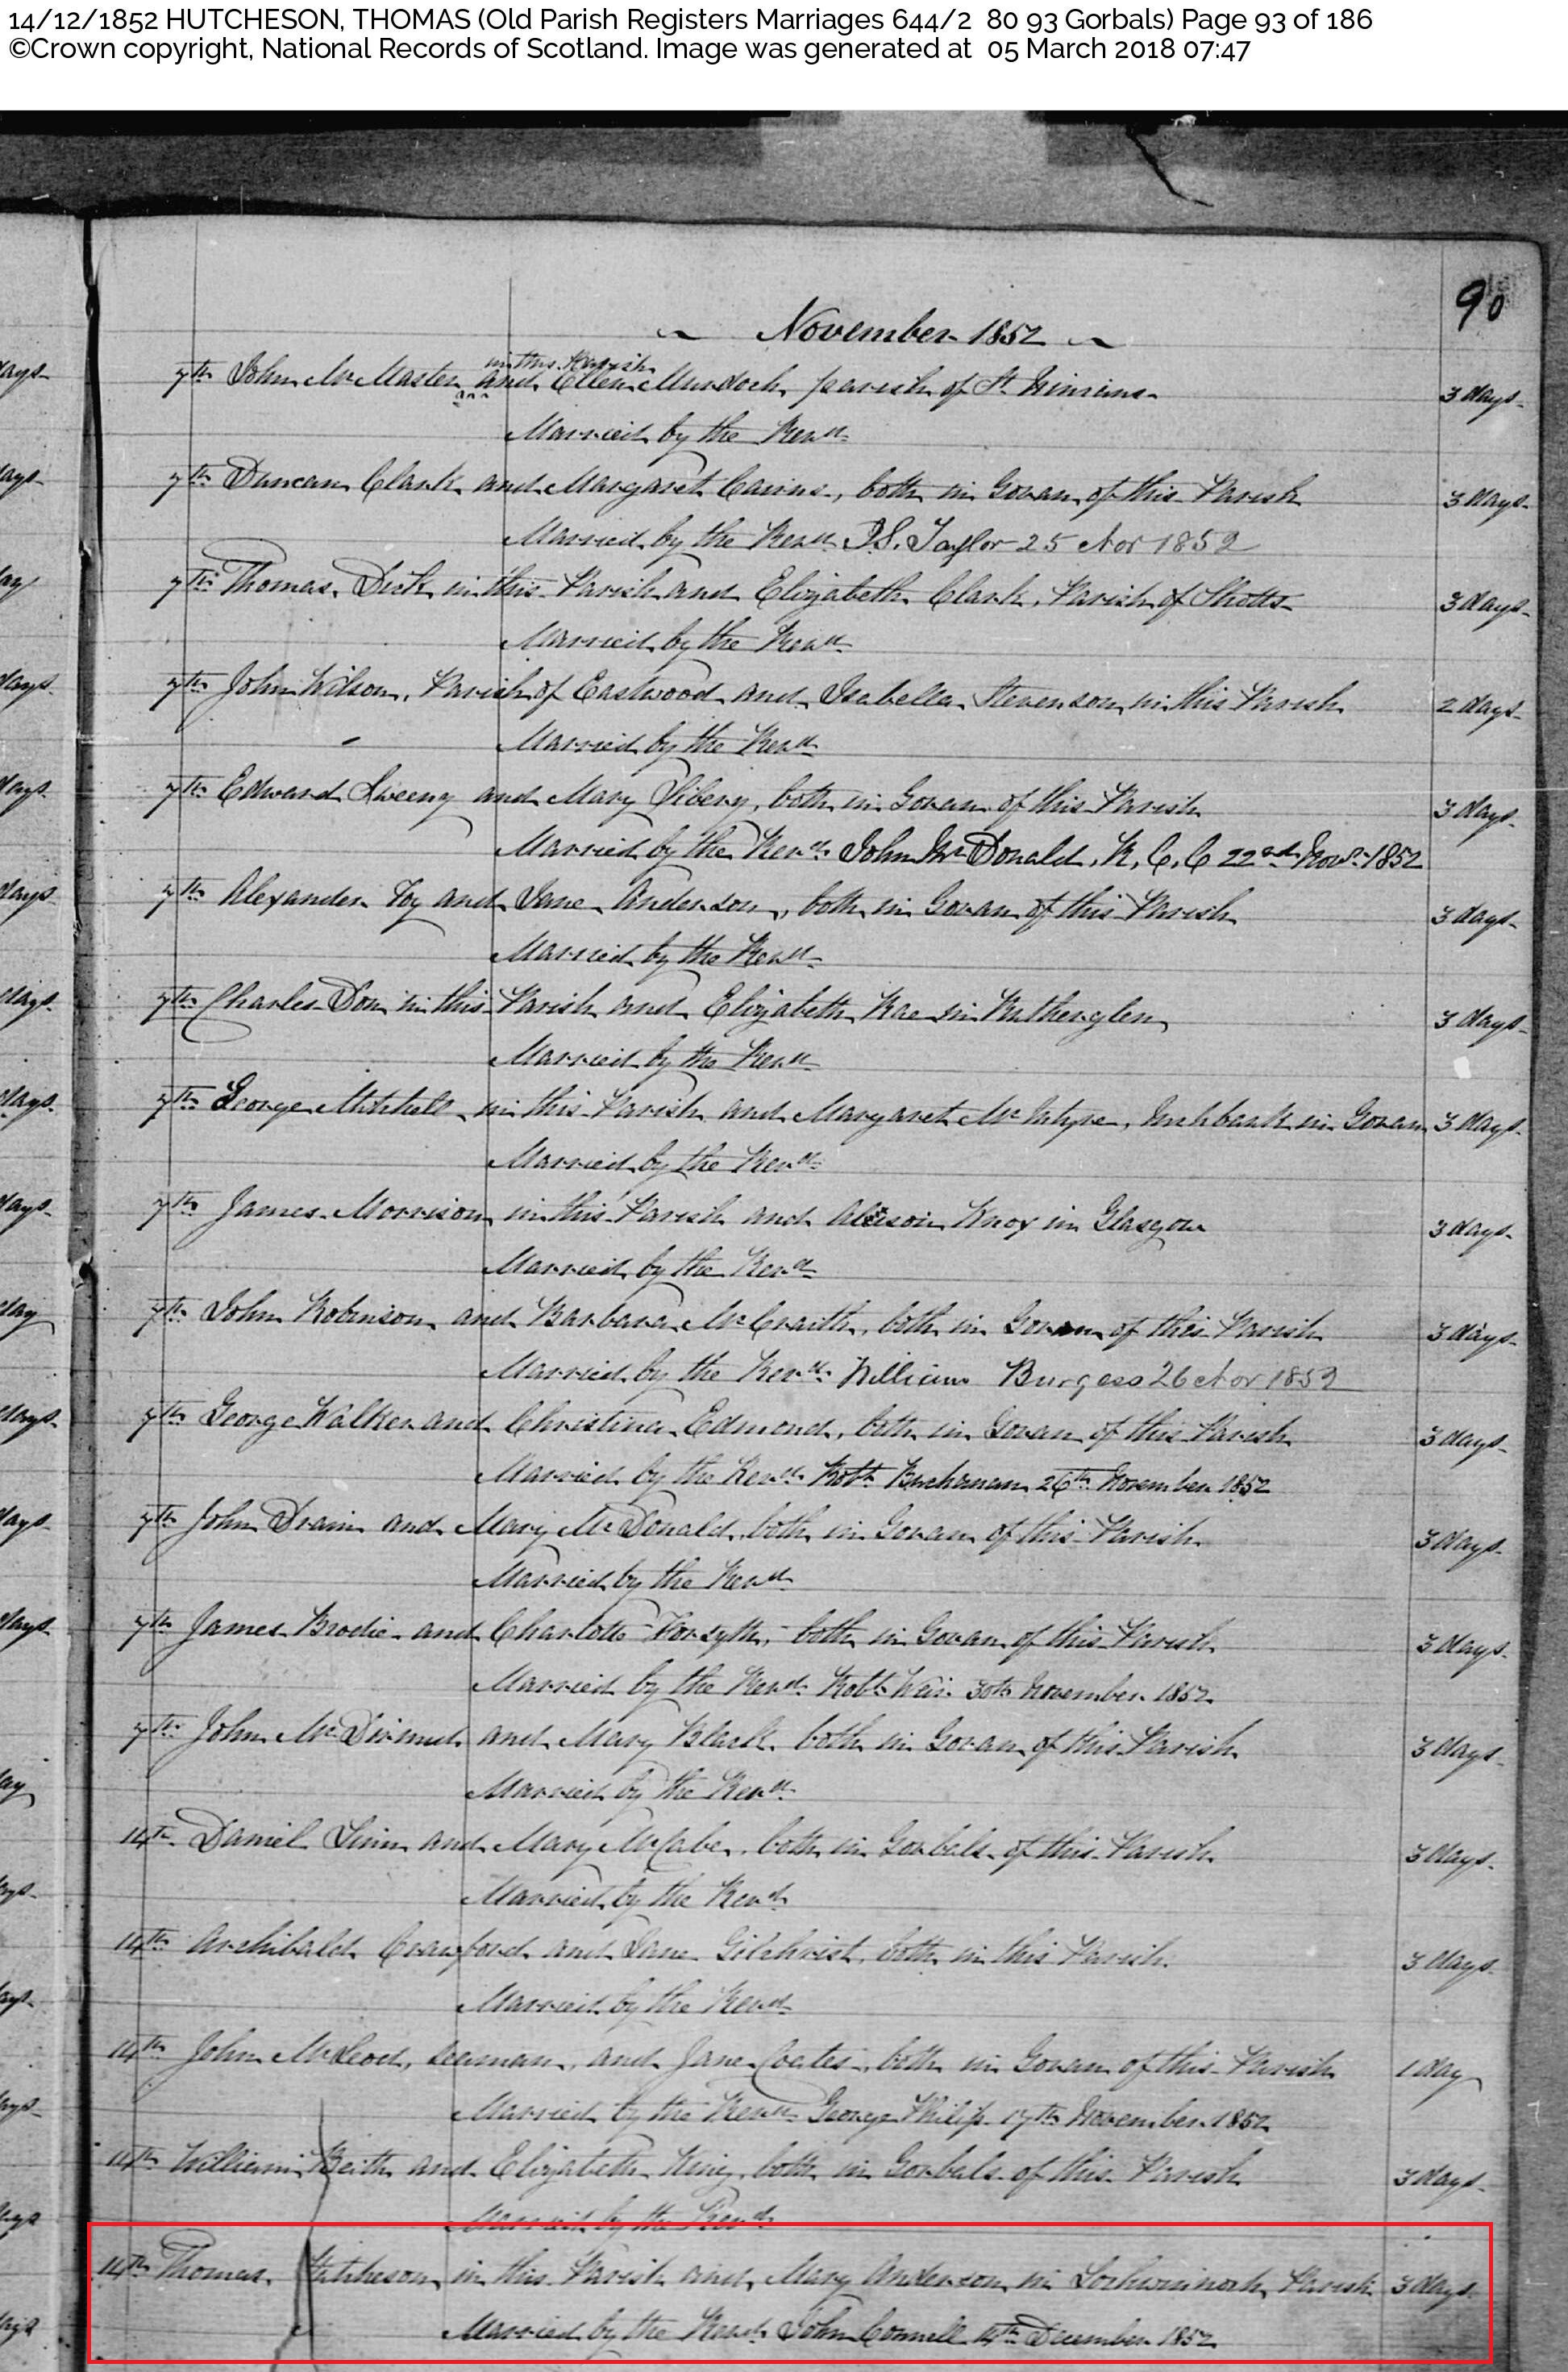 14/12/1852 HUTCHESON, THOMAS (Old Parish Registers Marriages 644/2 80 93 Gorbals) Page 93 of 186
©Crown copyright, National Records of Scotland. Image was generated at 05 March 2018 07:47
90
November 1852
in this Parish
7th John McMaster and Ellen Murdoch, parish of St. Ninians 3 days
Married by the Revd.
7th Duncan Clark and Margaret Cairns, both in Govan of this Parish 3 days
Married by the Revd. Taylor 25 Nov 1852
7th Thomas Dick in this Parish and Elizabeth Clark, Parish of Shotts 3 days
Married by the Revd.
7th John Wilson, Parish of Eastwood and Isabella Stevenson in this Parish 2 days
Married by the Revd.
7th Edward Sweeny and Mary, both in Govan of this Parish 3 days
Married by the Revd. John McDonald, R.C.C 22nd Novr. 1852
7th Alexander Foy and Jane Anderson, both in Govan of this Parish 3 days
Married by the Revd.
7th Charles Don in this Parish and Elizabeth Rae in Rutherglen 3 days
Married by the Revd.
7th George Mitchell in this Parish and Margaret McIntyre, in Govan 3 days
Married by the Revd.
7th James Morrison in this Parish and Alison Knox in Glasgow 3 days
Married by the Revd.
7th John Robinson and Barbara McCraith, both in Govan of this Parish 3 days
Married by the Revd. William Burgess 26 Nov 1852
7th George Walker and Christina Edmond, both in Govan of this Parish 3 days
Married by the Revd. Robt. Buchanan 26th November 1852
7th John Drain and Mary McDonald, both in Govan of this Parish 3 days
Married by the Revd.
7th James Brodie and Charlotte Forsyth, both in Govan of this Parish 3 days
Married by the Revd. Robt. Weir 30th November 1852
7th John McDirmid and Mary Black, both in Govan of this Parish 3 days
Married by the Revd.
14th Daniel and Mary McCabe, both in Gorbals of this Parish 3 days
Married by the Revd.
14th Archibald Crawford and Jane Gilchrist, both in this Parish 3 days
Married by the Revd.
14th John McLeod, seaman, and Jane Coates, both in Govan of this Parish 1 day
Married by the Revd. George Philip 17th November 1852
14th William Beith and Elizabeth King, both in Gorbals of this Parish 3 days
Married by the Revd.
14th Thomas Hutcheson in this Parish and Mary Anderson in Lochwinnoch Parish 3 days
Married by the Revd. John Connell 14th December 1852